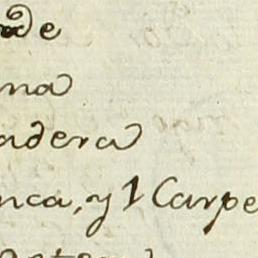 de
na
adera
nca, y 1 Carpe